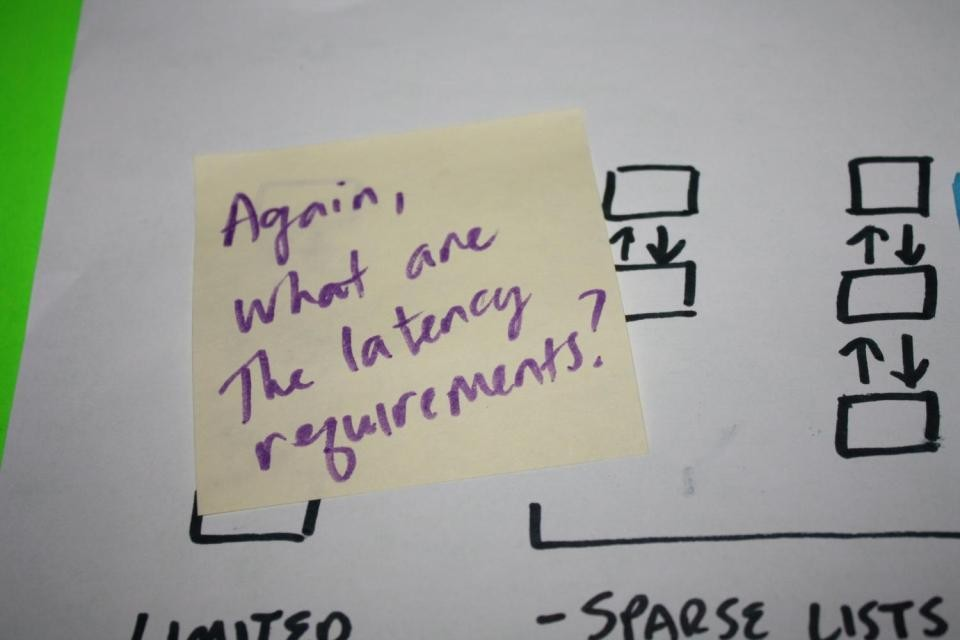 Again,
what are
The latency
requirements?
LIMITED
- SPARSE LISTS